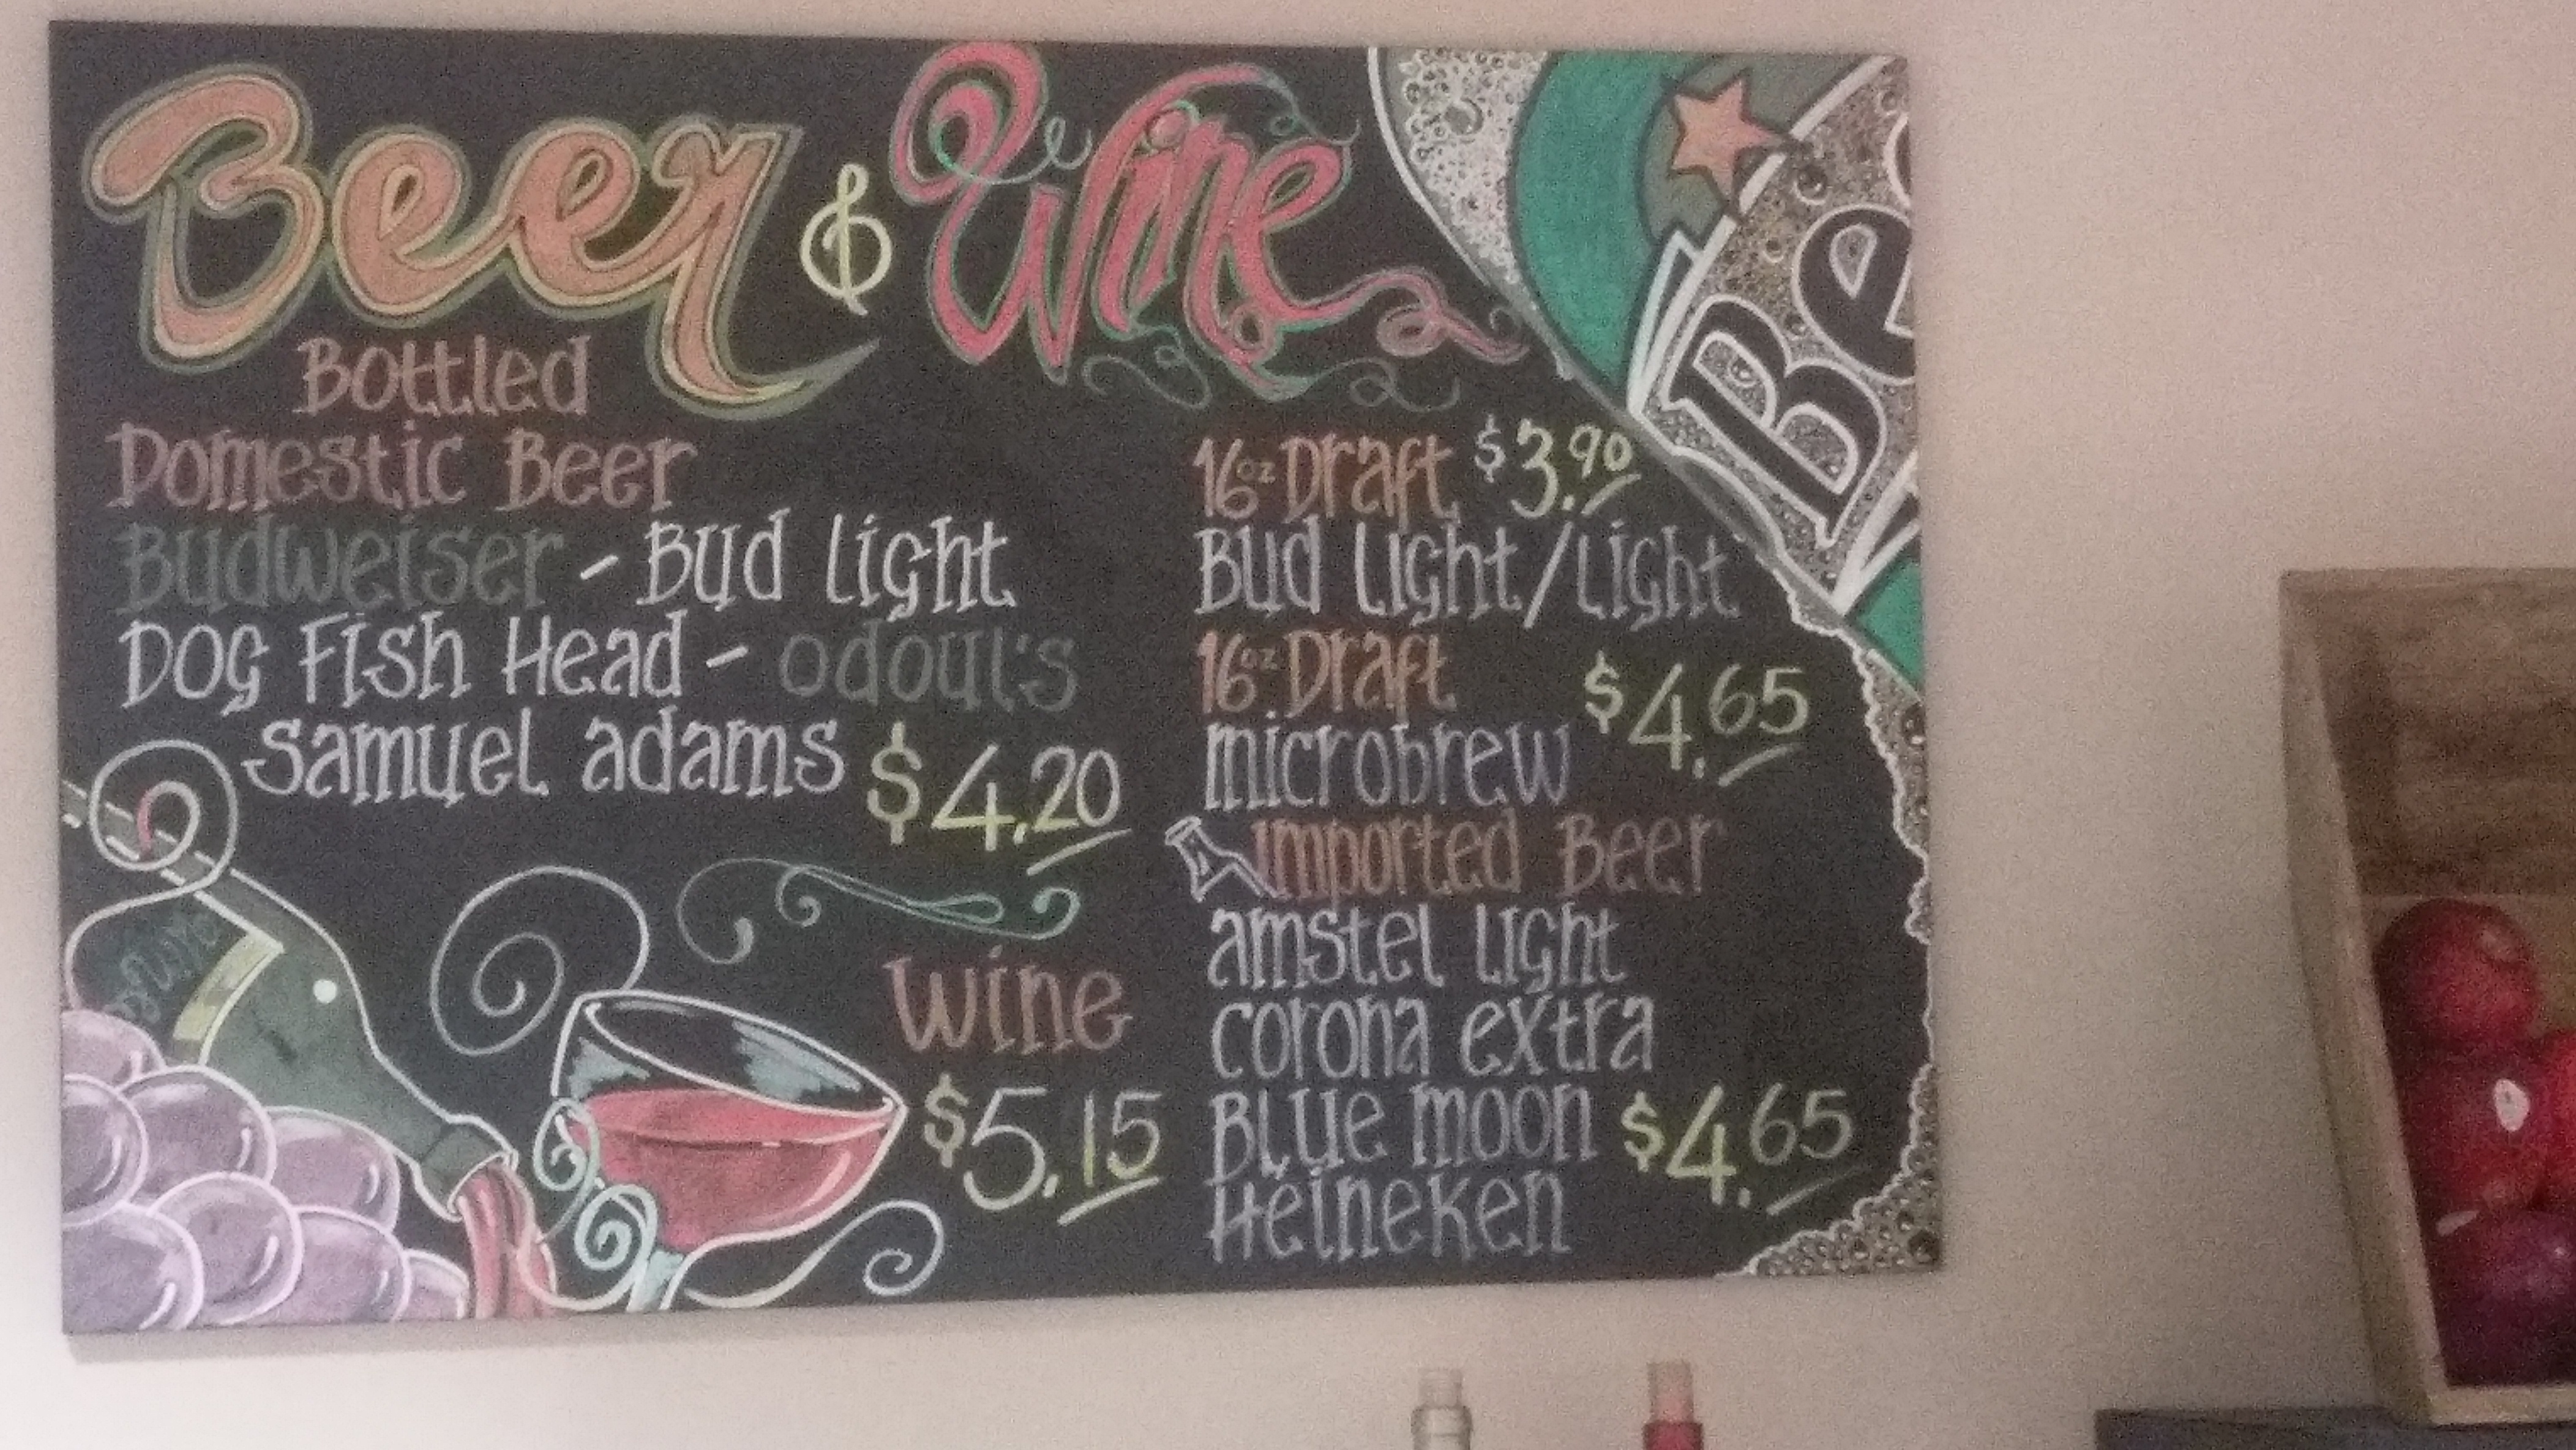 Beer & Wine
Bottled
Domestic Beer
Budweiser - Bud Light
Dog Fish Head - odoul's
Samuel adams $4.20
Wine
$5.15
16oz Draft $3.90
Bud Light/Light
16oz Draft
microbrew $4.65
Imported Beer
amstel Light
corona extra
Blue moon $4.65
Heineken
Be